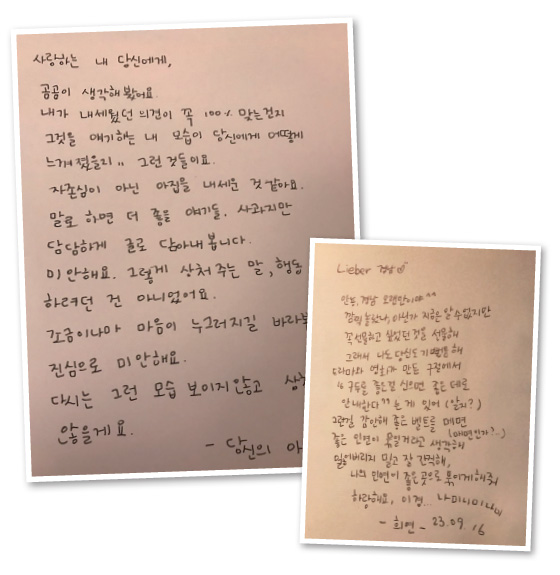 사랑하는 내 당신에게,
곰곰이 생각해 봤어요.
내가 내세웠던 의견이 꼭 100% 맞는건지
그것을 얘기하는 내 모습이 당신에게 어떻게
느껴졌을지.. 그런 것들이요.
자존심이 아닌 아집을 내세운 것 같아요.
말로 하면 더 좋을 얘기들. 사과지만
담담하게 글로 담아내 봅니다.
미안해요. 그렇게 상처 주는 말, 행동
하려던 건 아니었어요.
조금이나마 마음이 누그러지길 바라
진심으로 미안해요.
다시는 그런 모습 보이지 않고 상
않을게요.
- 당신의 아
Lieber
오랜만이야 ^^
지금은 알 수 없지만
꼭 선물하고 싶었던 것을 선물해
그래서 나도 당신도 기쁘길 해
드라마와 영화가 만든 구절에서
"구두는 좋은 걸 신으면 좋은 데로
안내한다" 는 게 있어 (알지?)
그런걸 감안해 좋은 벨트를 매면
좋은 인연이 묶일거라고 생각해
(매면인가?..)
잃어버리지 말고 잘 간직해,
너의 인연이 좋은 곳으로 묶이게 해줘
사랑해요, 이경...
- 희연 - 23.09.16